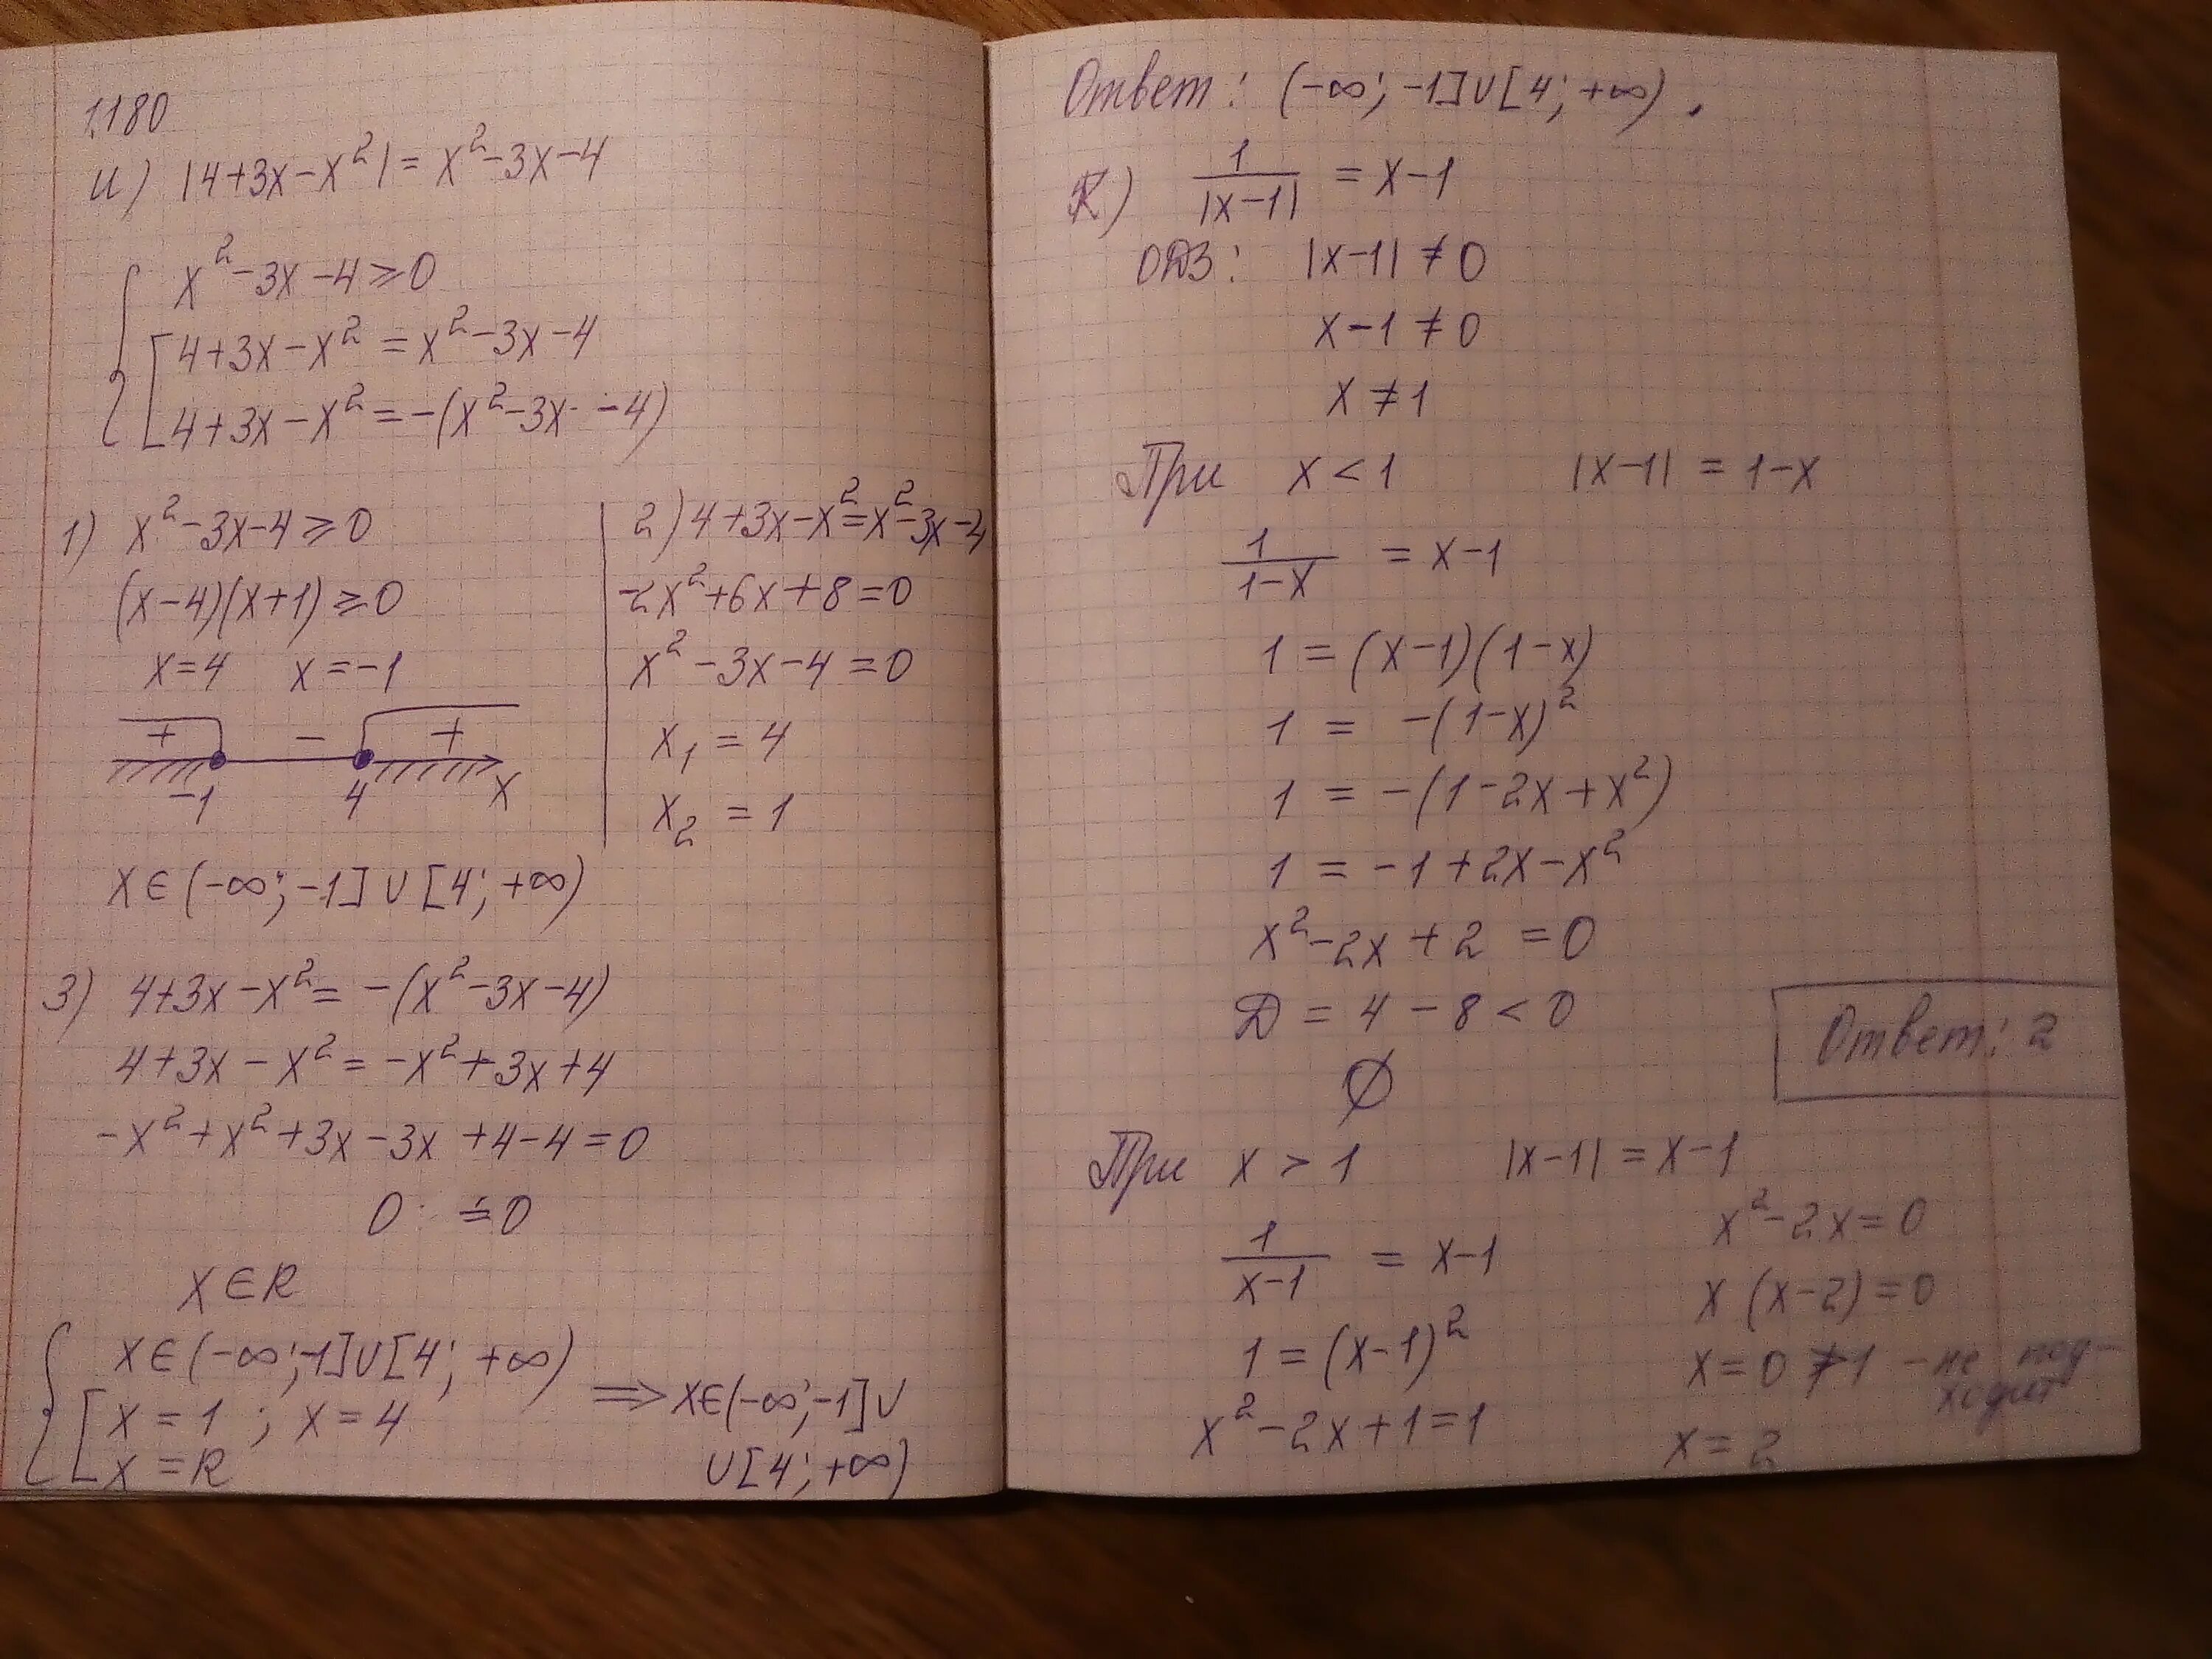 1.180
и) |4+3x-x²| = x²-3x-4
{ x²-3x-4 ⩾ 0
[ 4+3x-x² = x²-3x-4
4+3x-x² = -(x²-3x-4)
1) x²-3x-4 ⩾ 0
(x-4)(x+1) ⩾ 0
x=4 x=-1
+ - +
-1 4 x
x∈(-∞;-1]∪[4;+∞)
2) 4+3x-x²=x²-3x-4
-2x²+6x+8=0
x²-3x-4=0
x₁ = 4
x₂ = 1
3) 4+3x-x² = -(x²-3x-4)
4+3x-x² = -x²+3x+4
-x²+x²+3x-3x+4-4=0
0 = 0
x∈R
{ x∈(-∞;-1]∪[4;+∞)
[ x = 1 ; x = 4
x = R
⟹ x∈(-∞;-1]∪
∪[4;+∞)
Ответ: (-∞;-1]∪[4;+∞).
к) 1/|x-1| = x-1
ОДЗ: |x-1| ≠ 0
x-1 ≠ 0
x ≠ 1
При x < 1 |x-1| = 1-x
1/(1-x) = x-1
1 = (x-1)(1-x)
1 = -(1-x)²
1 = -(1-2x+x²)
1 = -1+2x-x²
x²-2x+2 = 0
Д = 4-8 < 0
∅
При x > 1 |x-1| = x-1
1/(x-1) = x-1
1 = (x-1)²
x²-2x+1=1
x²-2x=0
x(x-2)=0
x=0 ≯1 - не под-
ходит
x = 2
Ответ: 2